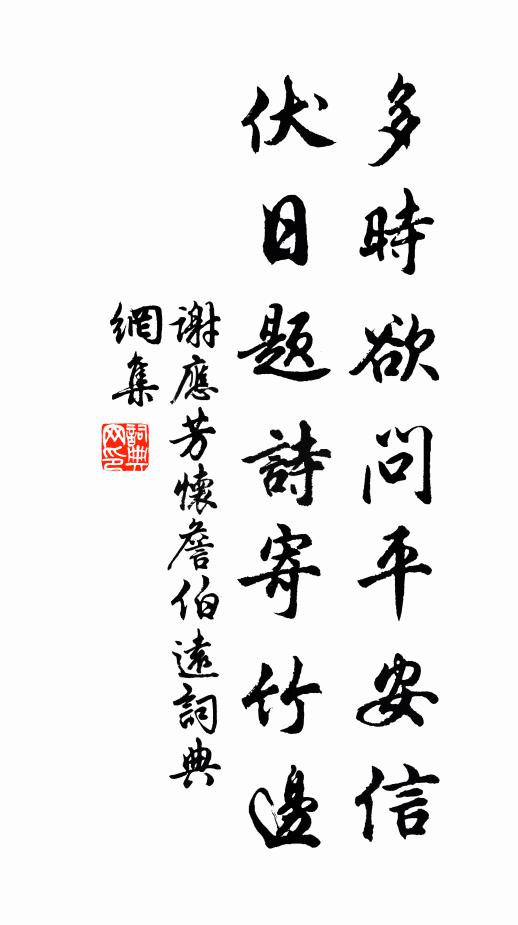 多時欲問平安信
伏日題詩寄竹邊
謝應芳懷詹伯遠詞典
網集
詞典
网印